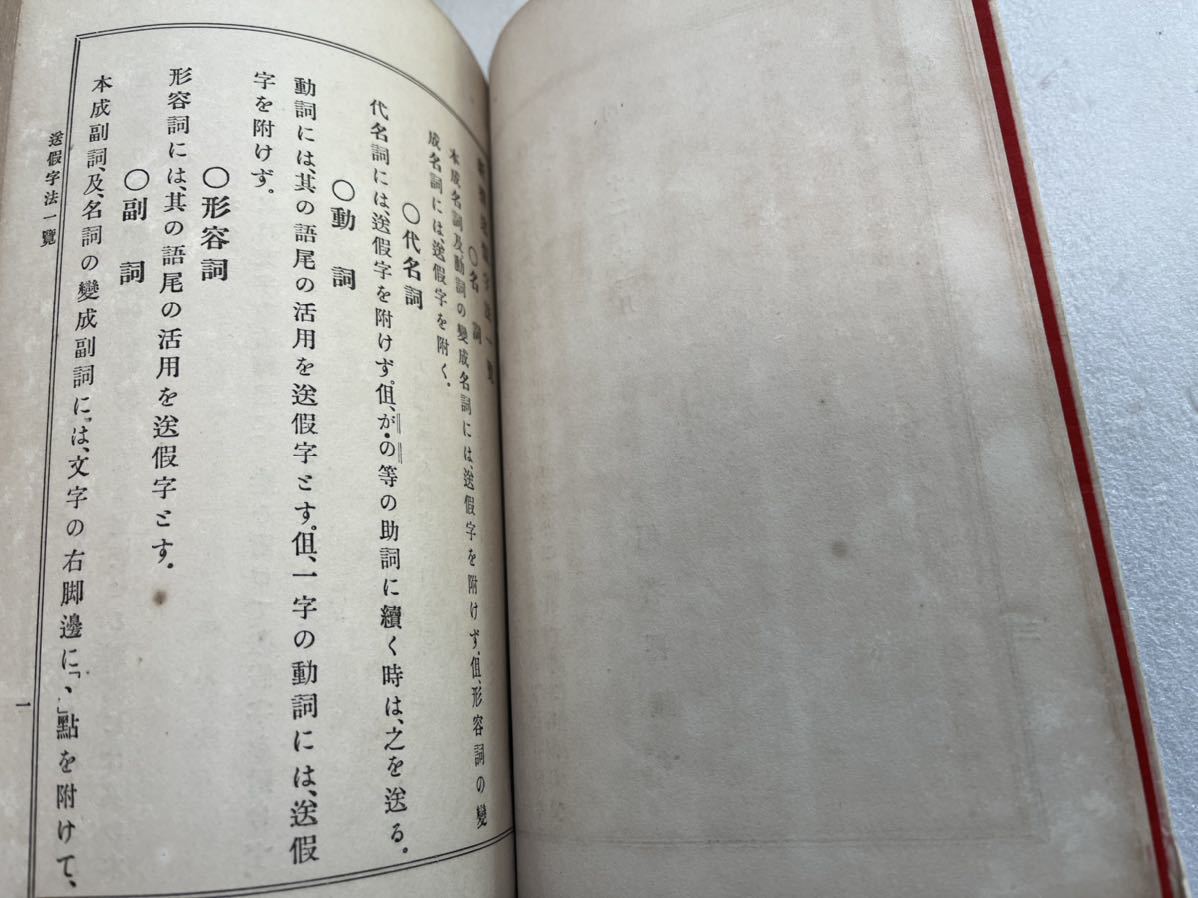 送假字法一覽
○名詞
本成名詞及動詞の變成名詞には、送假字を附けず。但、形容詞の變
成名詞には、送假字を附く。
○代名詞
代名詞には、送假字を附けず。但、が・の等の助詞に續く時は、之を送る。
○動詞
動詞には、其の語尾の活用を送假字とす。但、一字の動詞には、送假
字を附けず。
○形容詞
形容詞には、其の語尾の活用を送假字とす。
○副詞
本成副詞、及、名詞の變成副詞には、文字の右脚邊に「、」點を附けて、
送假字法一覽
一